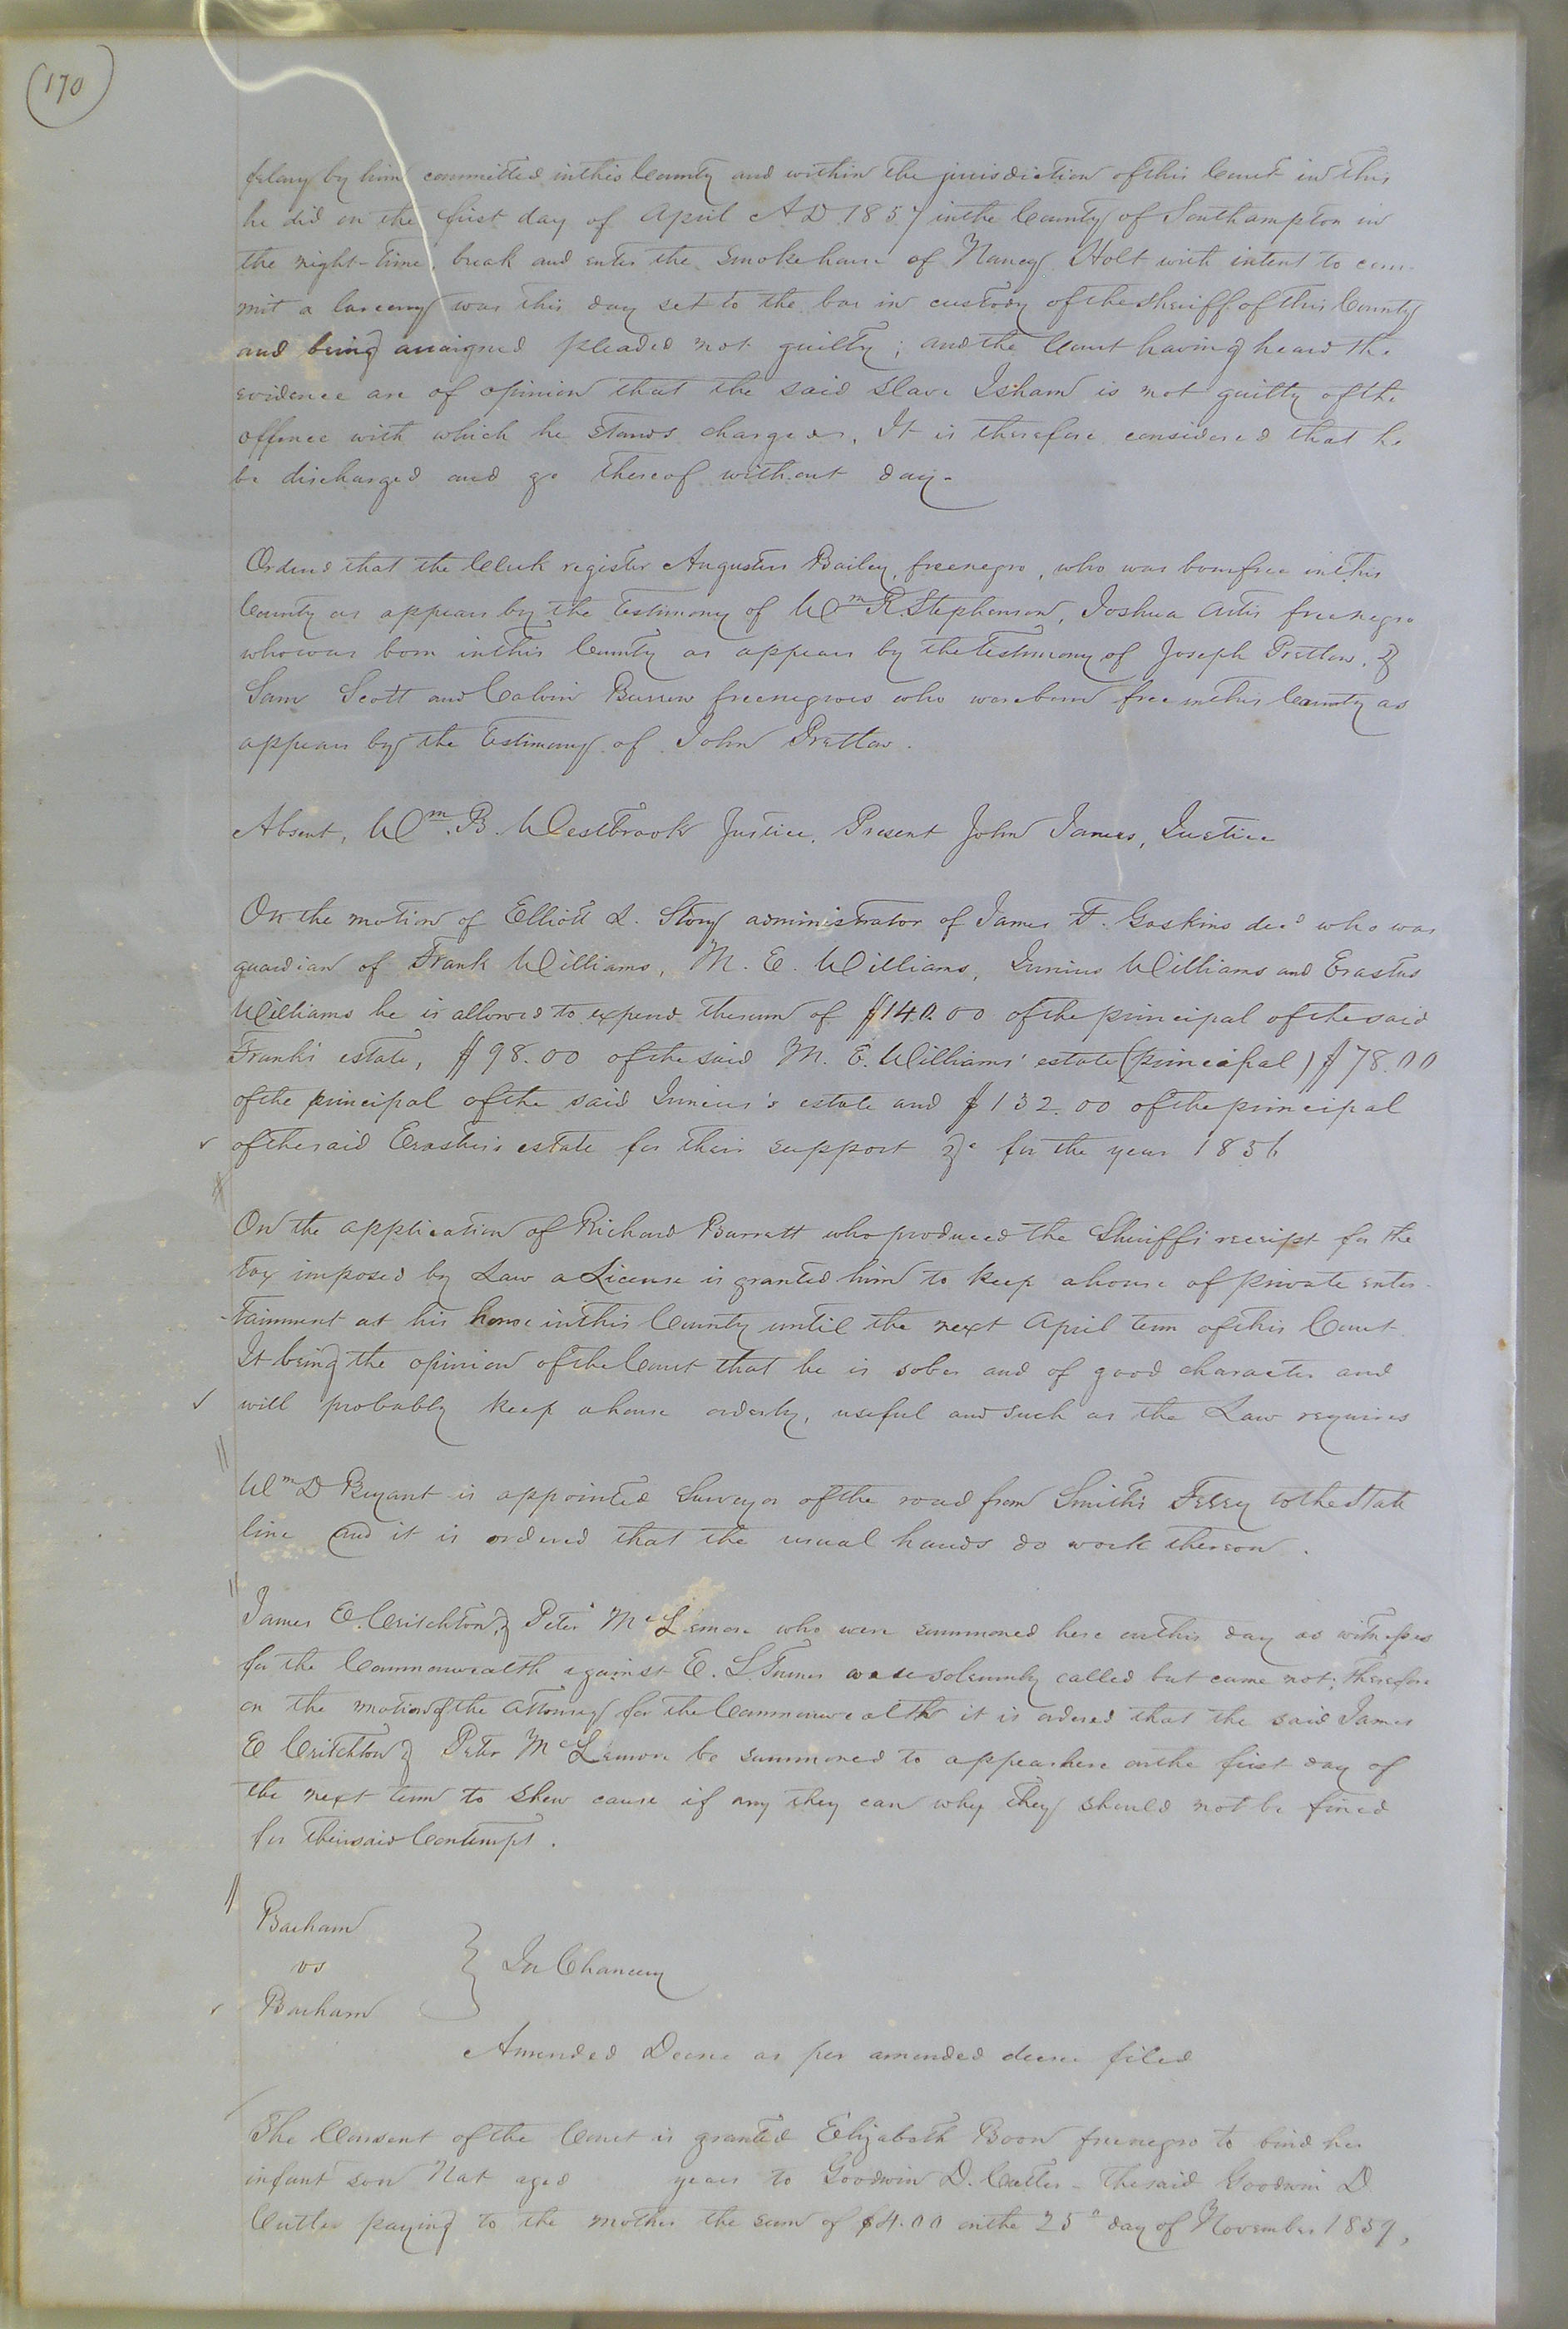 (170)
felony by him committed in this County and within the jurisdiction of this Court in this
he did on the first day of April A D 1857 in the County of Southampton in
the night-time, break and enter the smoke house of Nancy Holt with intent to com-
mit a larceny was this day set to the bar in custody of the Sheriff of this County
and being arraigned pleaded not guilty; and the Court having heard the
evidence are of opinion that the said slave Isham is not guilty of the
offence with which he stands charged. It is therefore considered that he
be discharged and go thereof without day.
Ordered that the Clerk register Augustus Bailey, free negro, who was born free in this
County as appears by the testimony of Wm R. Stephenson, Joshua Artis free negro
who was born in this County as appears by the testimony of Joseph Pretlow, &
Sam Scott and Calvin free negroes who were born free in this County as
appears by the testimony of John Pretlow.
Absent, Wm. B. Westbrook Justice, Present John James, Justice
On the motion of Elliott L. Story administrator of James F. Gaskins decd who was
guardian of Frank Williams, M. E. Williams, Junius Williams and Erastus
Williams he is allowed to expend the sum of $140.00 of the principal of the said
Frank's estate, $98.00 of the said M. E. Williams' estate (principal) $78.00
of the principal of the said Junius's estate and $132.00 of the principal
of the said Erastus's estate for their support &c for the year 1856
On the application of Richard Barrett who produced the Sheriff's receipt for the
tax imposed by Law a License is granted him to keep a house of private enter-
-tainment at his house in this County until the next April term of this Court
It being the opinion of the Court that he is sober and of good character and
will probably keep a house orderly, useful and such as the Law requires
Wm D Bryant is appointed Surveyor of the road from Smith's Ferry to the State
line and it is ordered that the usual hands do work thereon.
James E. Critchton, & Peter McLemore who were summoned here on this day as witnesses
for the Commonwealth against E. L. Turner were solemnly called but came not; therefore
on the motion of the Attorney for the Commonwealth it is ordered that the said James
E Critchton & Peter McLemore be summoned to appear here on the first day of
the next term to shew cause if any they can why they should not be fined
for their said Contempt.
Barham
vs } In Chancery
Barham
Amended Decree as per amended decree filed
The Consent of the Court is granted Elizabeth Boon free negro to bind her
infant son Nat aged years to Goodwin D. Cutler - The said Goodwin D
Cutler paying to the mother the sum of $4.00 on the 25th day of November 1859,